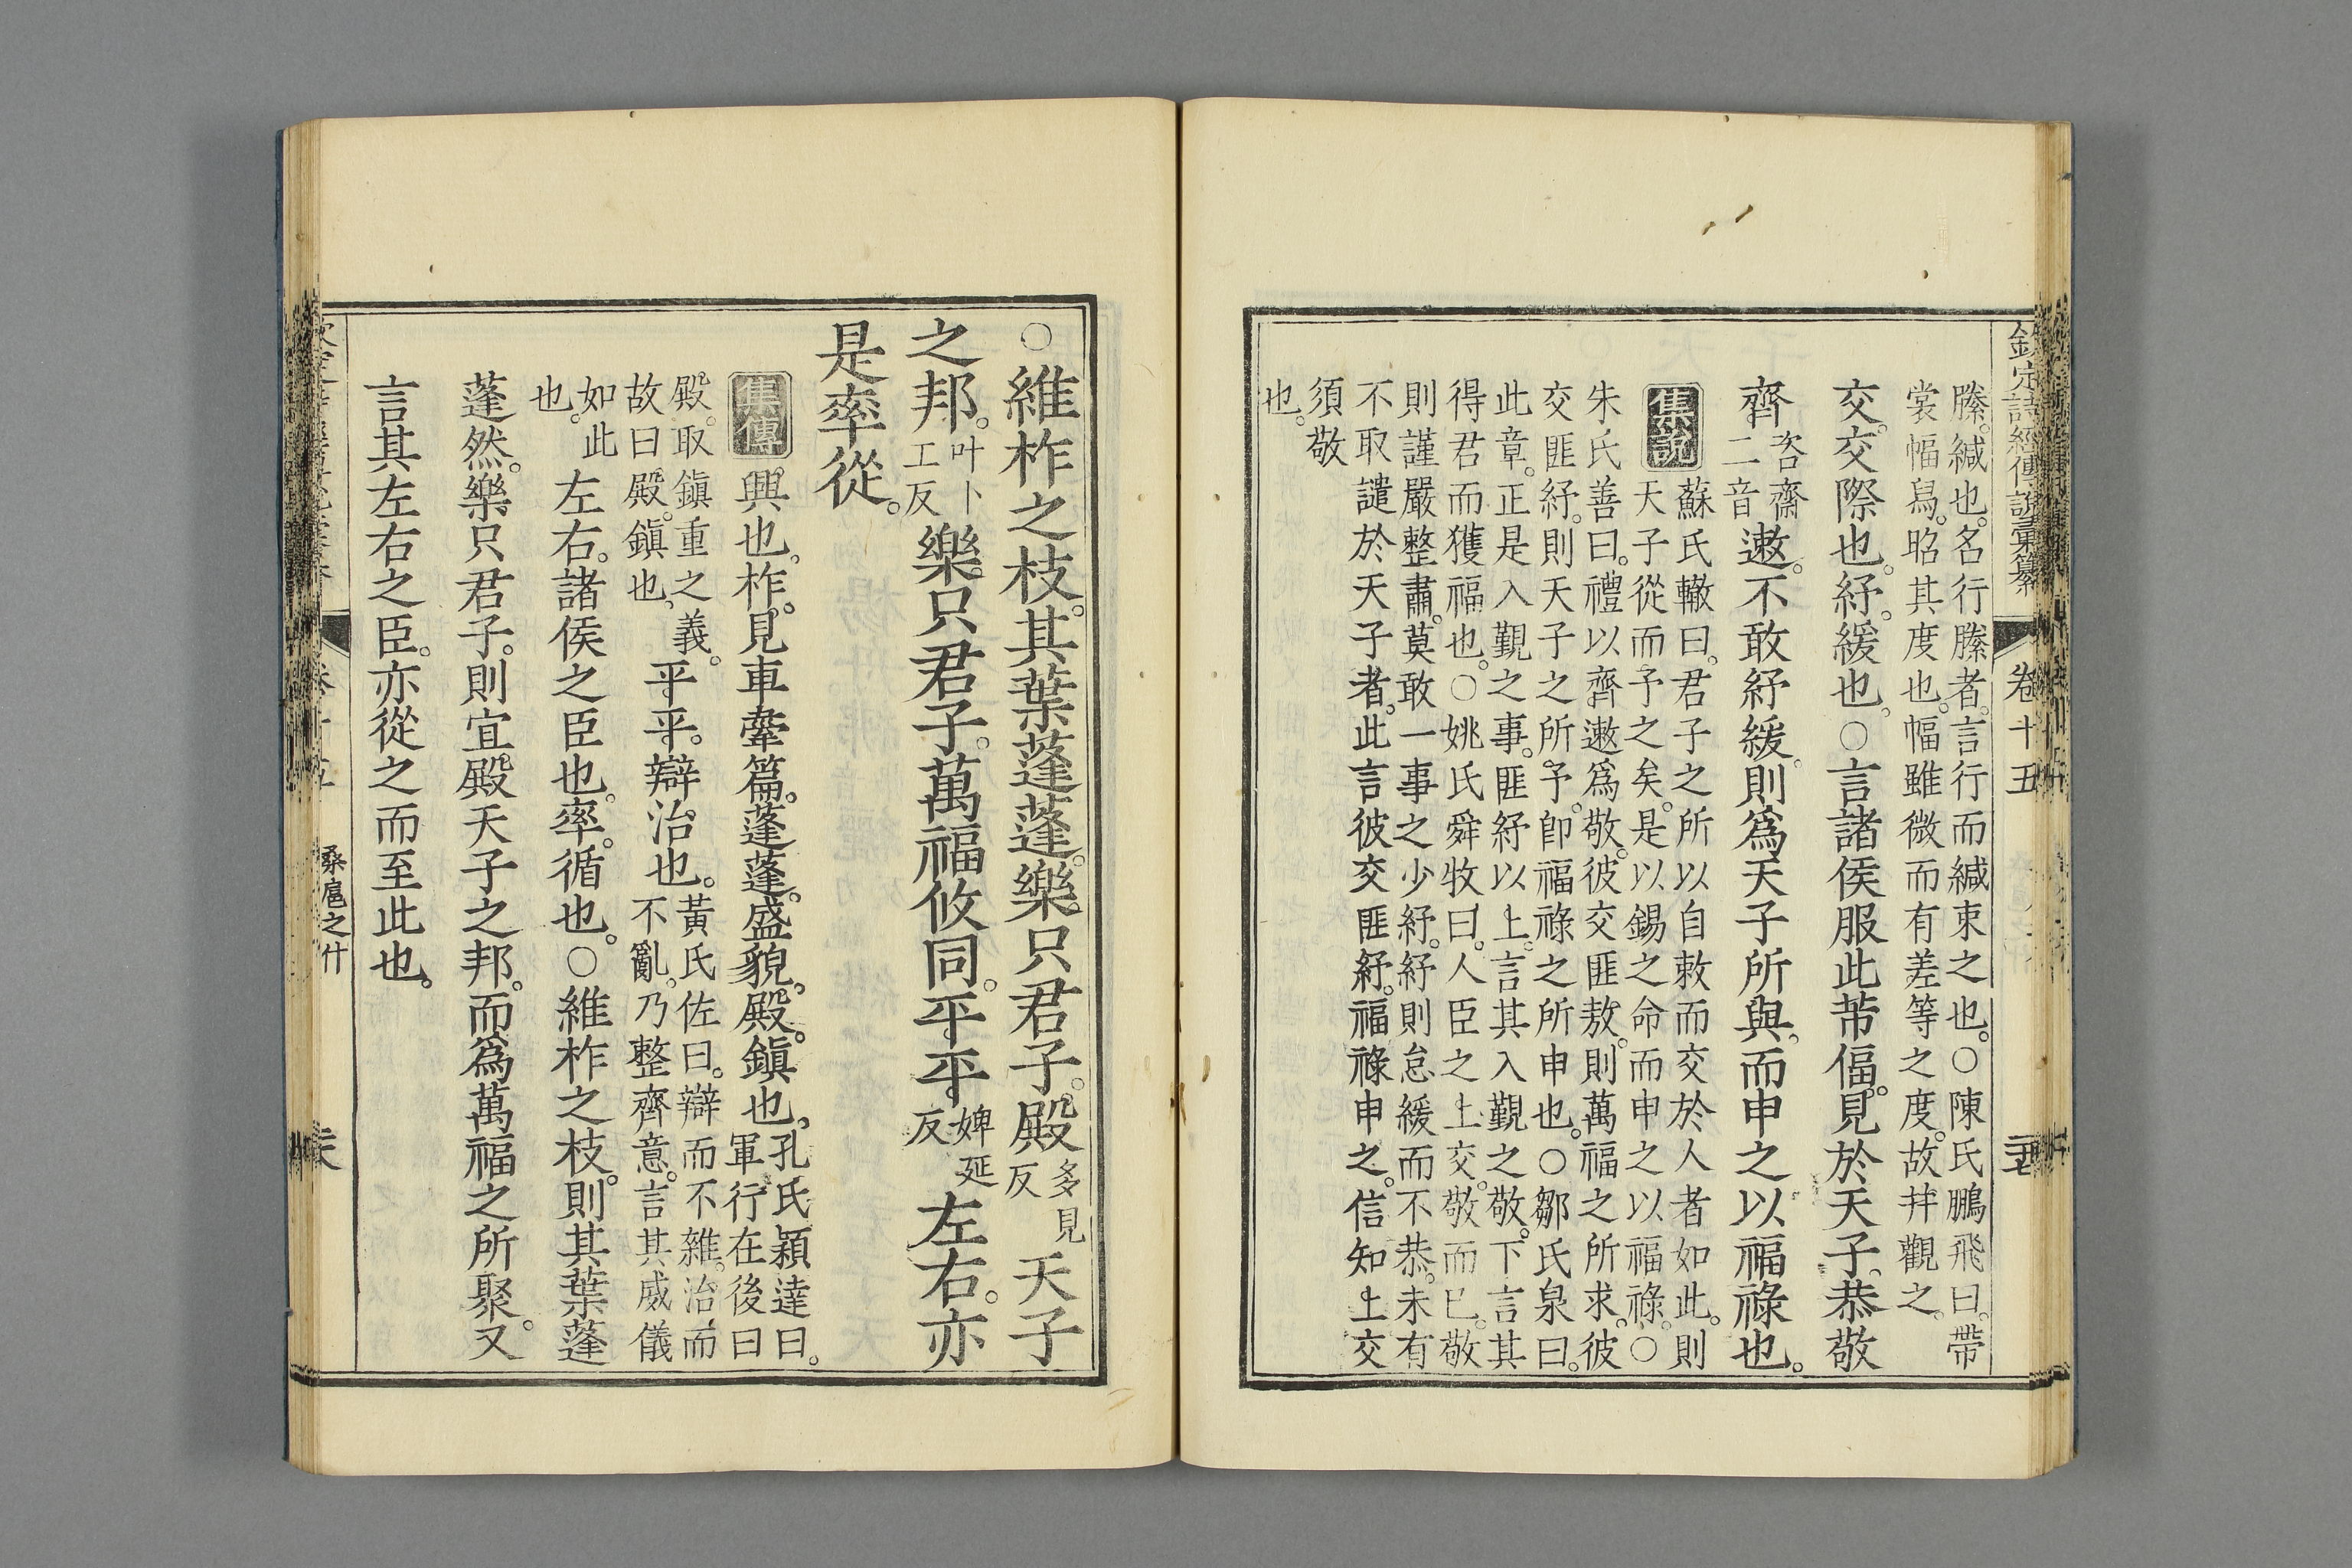 欽定詩經傳說彙纂 卷十五
縢。緘也。名行縢者。言行而緘束之也。○陳氏鵬飛曰。帶
裳幅舄。昭其度也。幅雖微而有差等之度。故幷觀之。
交。交際也。紓。緩也。○言諸侯服此芾偪。見於天子。恭敬
齊咨齋二音遬。不敢紓緩。則爲天子所與。而申之以福祿也。
集說
蘇氏轍曰。君子之所以自敕而交於人者如此。則
天子從而予之矣。是以錫之命而申之以福祿。○
朱氏善曰。禮以齊遬爲敬。彼交匪敖。則萬福之所求。彼
交匪紓。則天子之所予。卽福祿之所申也。○鄒氏泉曰。
此章。正是入覲之事。匪紓以上。言其入覲之敬。下言其
得君而獲福也。○姚氏舜牧曰。人臣之上交。敬而已。敬
則謹嚴整肅。莫敢一事之少紓。紓則怠緩而不恭。未有
不取譴於天子者。此言彼交匪紓。福祿申之。信知上交
須敬
也。
○維柞之枝。其葉蓬蓬。樂只君子。殿多見反天子
之邦。叶卜工反樂只君子。萬福攸同。平平婢延反左右。亦
是率從。
集傳
興也。柞。見車舝篇。蓬蓬。盛貌。殿。鎭也。孔氏穎達曰。軍行在後曰
殿。取鎭重之義。故曰殿。鎭也。平平。辯治也。黃氏佐曰。辯而不雜。治而不亂。乃整齊意。言其威儀
如此也。左右。諸侯之臣也。率。循也。○維柞之枝。則其葉蓬
蓬然。樂只君子。則宜殿天子之邦。而爲萬福之所聚。又
言其左右之臣。亦從之而至此也。
桑扈之什